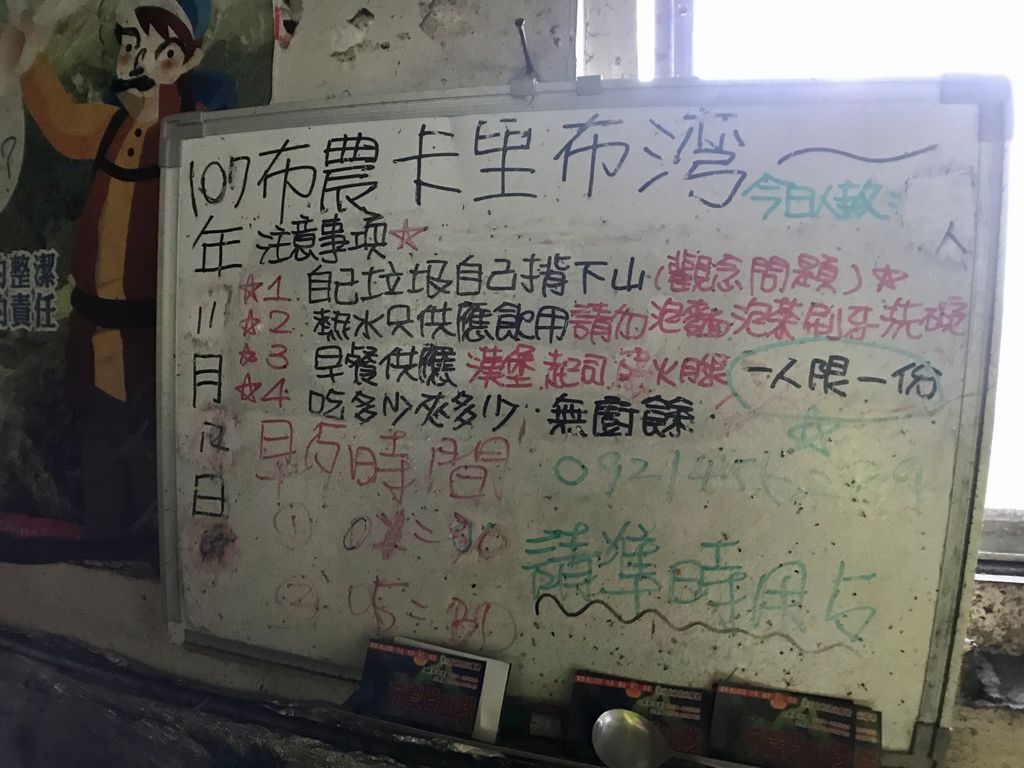 107年11月12日
布農卡里布灣
今日人数:
人
注意事项☆
☆1 自己垃圾自己揹下山(觀念問題)☆
☆2 熱水只供應飲用請勿泡麵泡茶刷牙洗碗
☆3 早餐供應 漢堡起司 火腿 一人限一份
☆4 吃多少夾多少 無廚餘.
早歺時間
① 0 :30
② 05:30
請準時用歺
整潔
責任